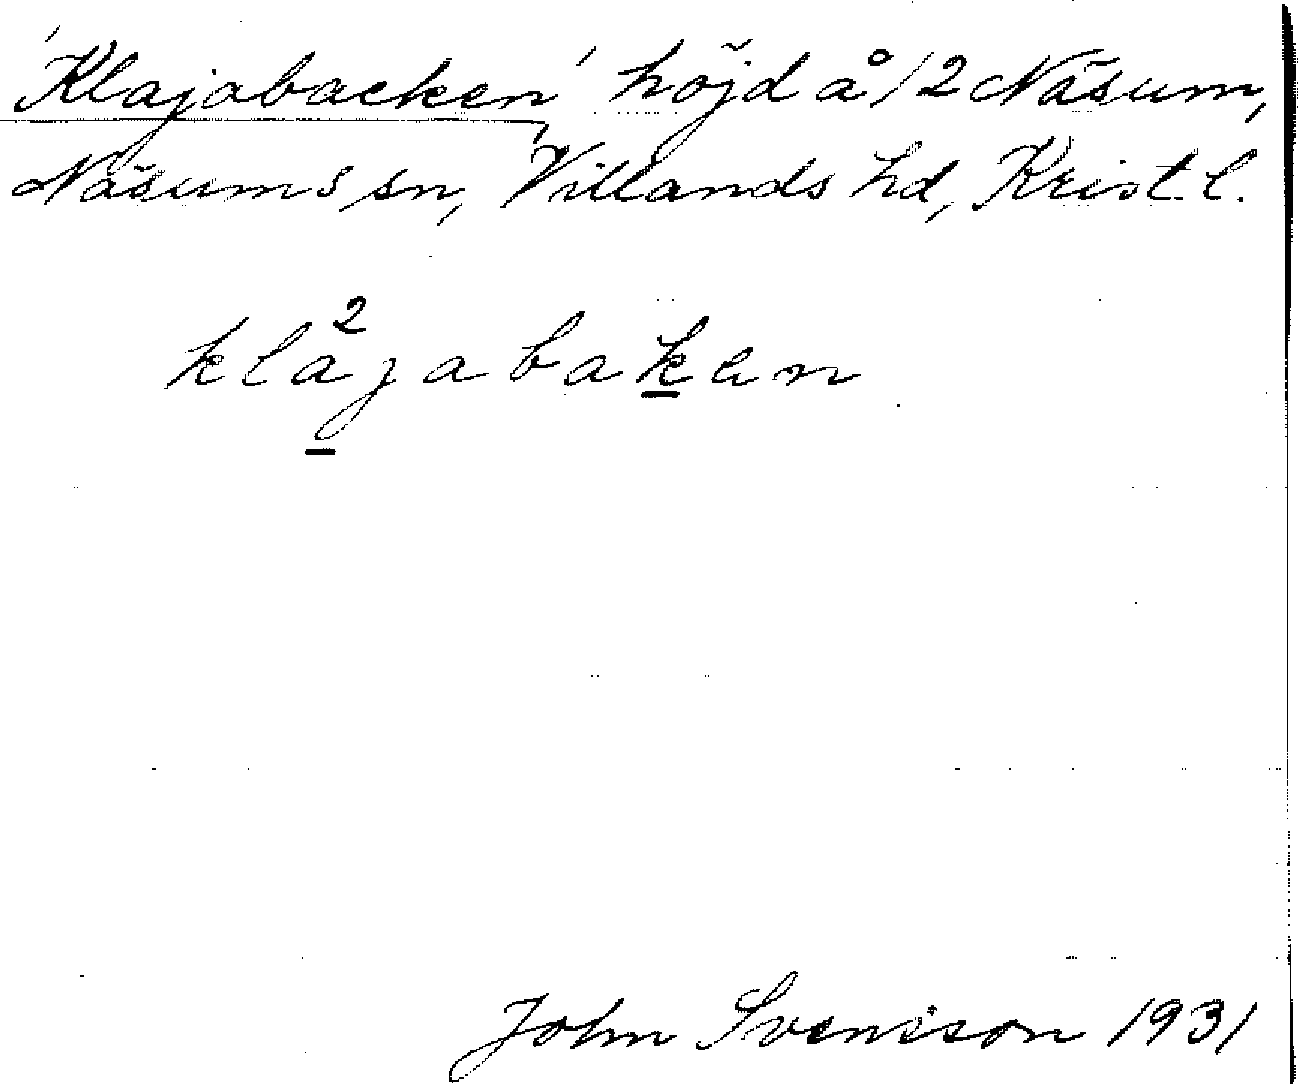 'Klajabacken' höjd å 12 Näsum,
Näsums sn, Villands hd, Krist. l.
kla²jabakan
John Svensson 1931